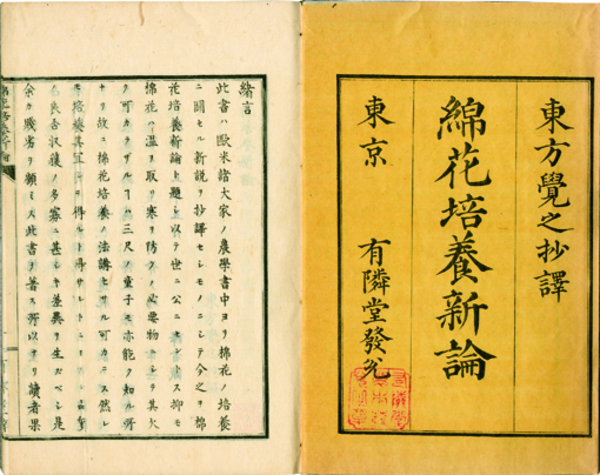 東方覺之抄譯
綿花培養新論
東京
有隣堂發兌
緒言
此書ハ歐米諸大家ノ農學書中ヨリ棉花ノ培養
ニ關セル新説ヲ抄譯セシモノニシテ今之ヲ棉
花培養新論ト題シ以テ世ニ公ニセントス抑モ
棉花ハ温ヲ取リ寒ヲ防クノ必要物ニシテ其欠
ク可カラザルヿハ三尺ノ童子モ亦能ク知ル所
ナリ故ニ棉花培養ノ法講セサル可カラス然レ
𪜈培養其宜シキヲ得ルト得サルトニ
収穫ノ多寡ニ甚シキ差異ヲ生スベシ是
余カ賤劣ヲ顧ミス此書ヲ著ス所以ナリ讀者果